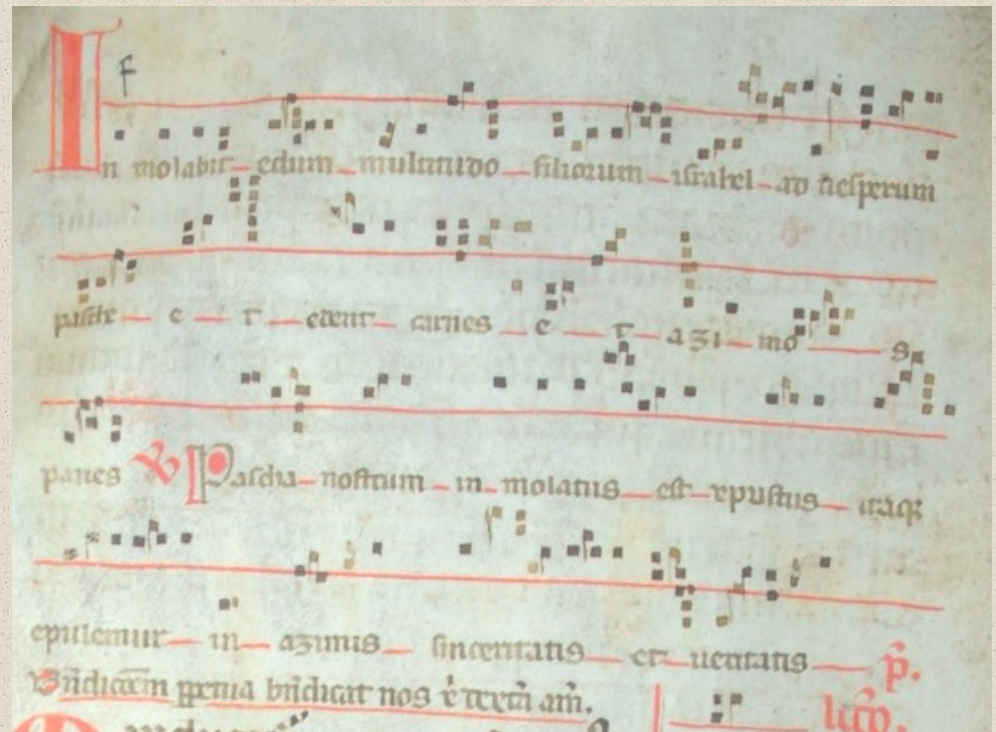 In molabit edum multitudo filiorum israhel ad uesperum
pasche e t edent carnes e t azimo s
panes Pascha nostrum in molatus est xpistus itaq
epulemur in azimis sinceritatis et ueritatis p.
nos am.
lcco.